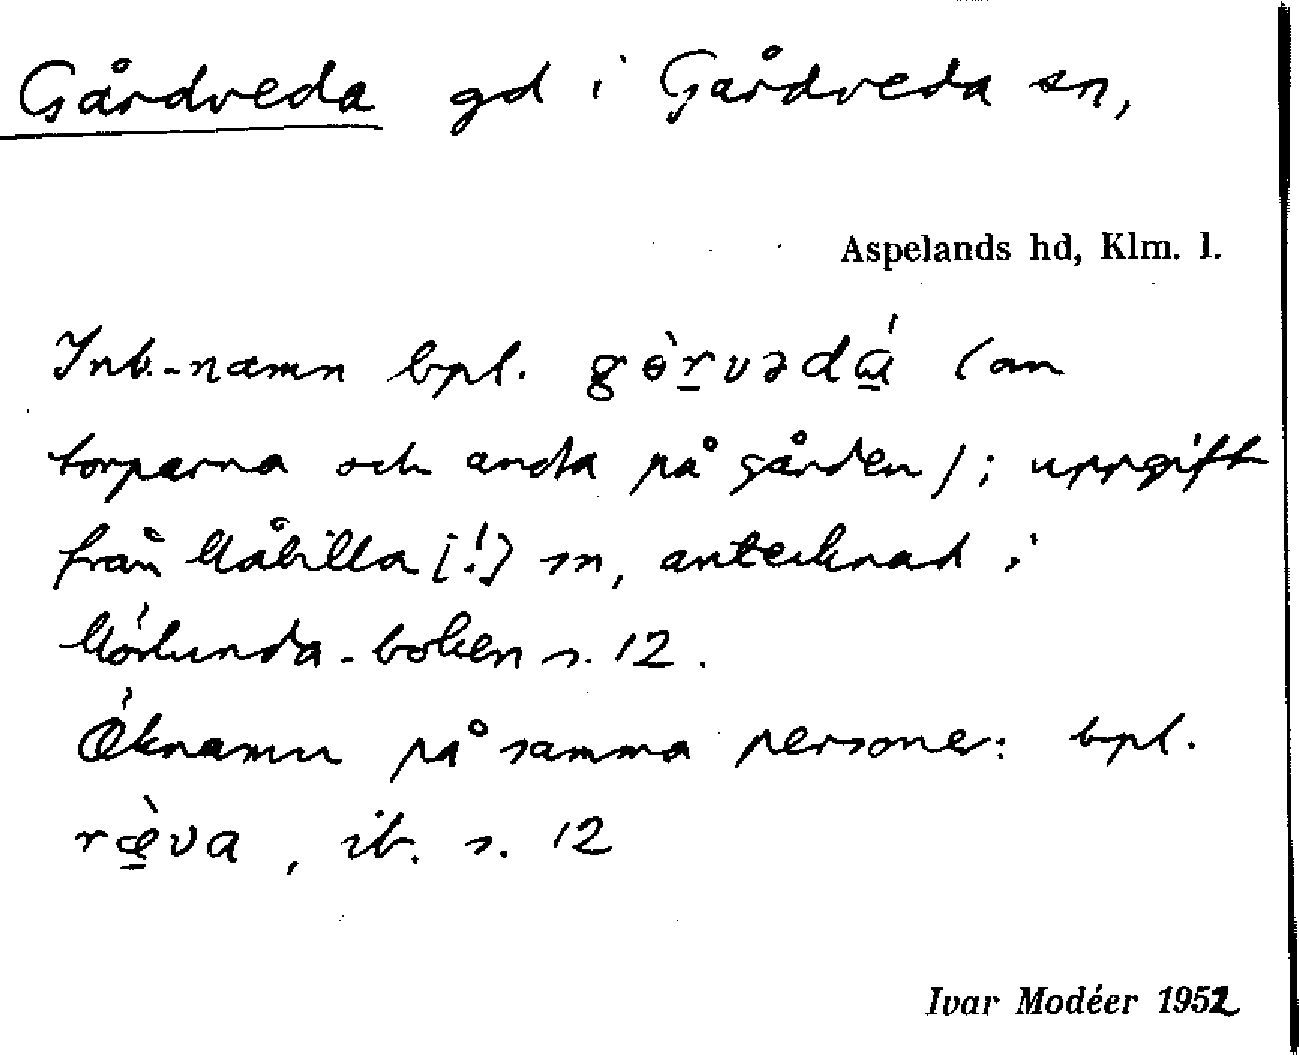 Gårdveda gd i Gårdveda sn,
Aspelands hd, Klm. l.
Inb.-namn bpl. gɵ̀r̠vədá̠ (om
torparna och andra på gården); uppgift
från Målilla [!] sn, antecknad i
Mörlunda-boken s. 12.
Öknamn på samma personer: bpl.
ræ̠̀va, ib. s. 12
Ivar Modéer 1952